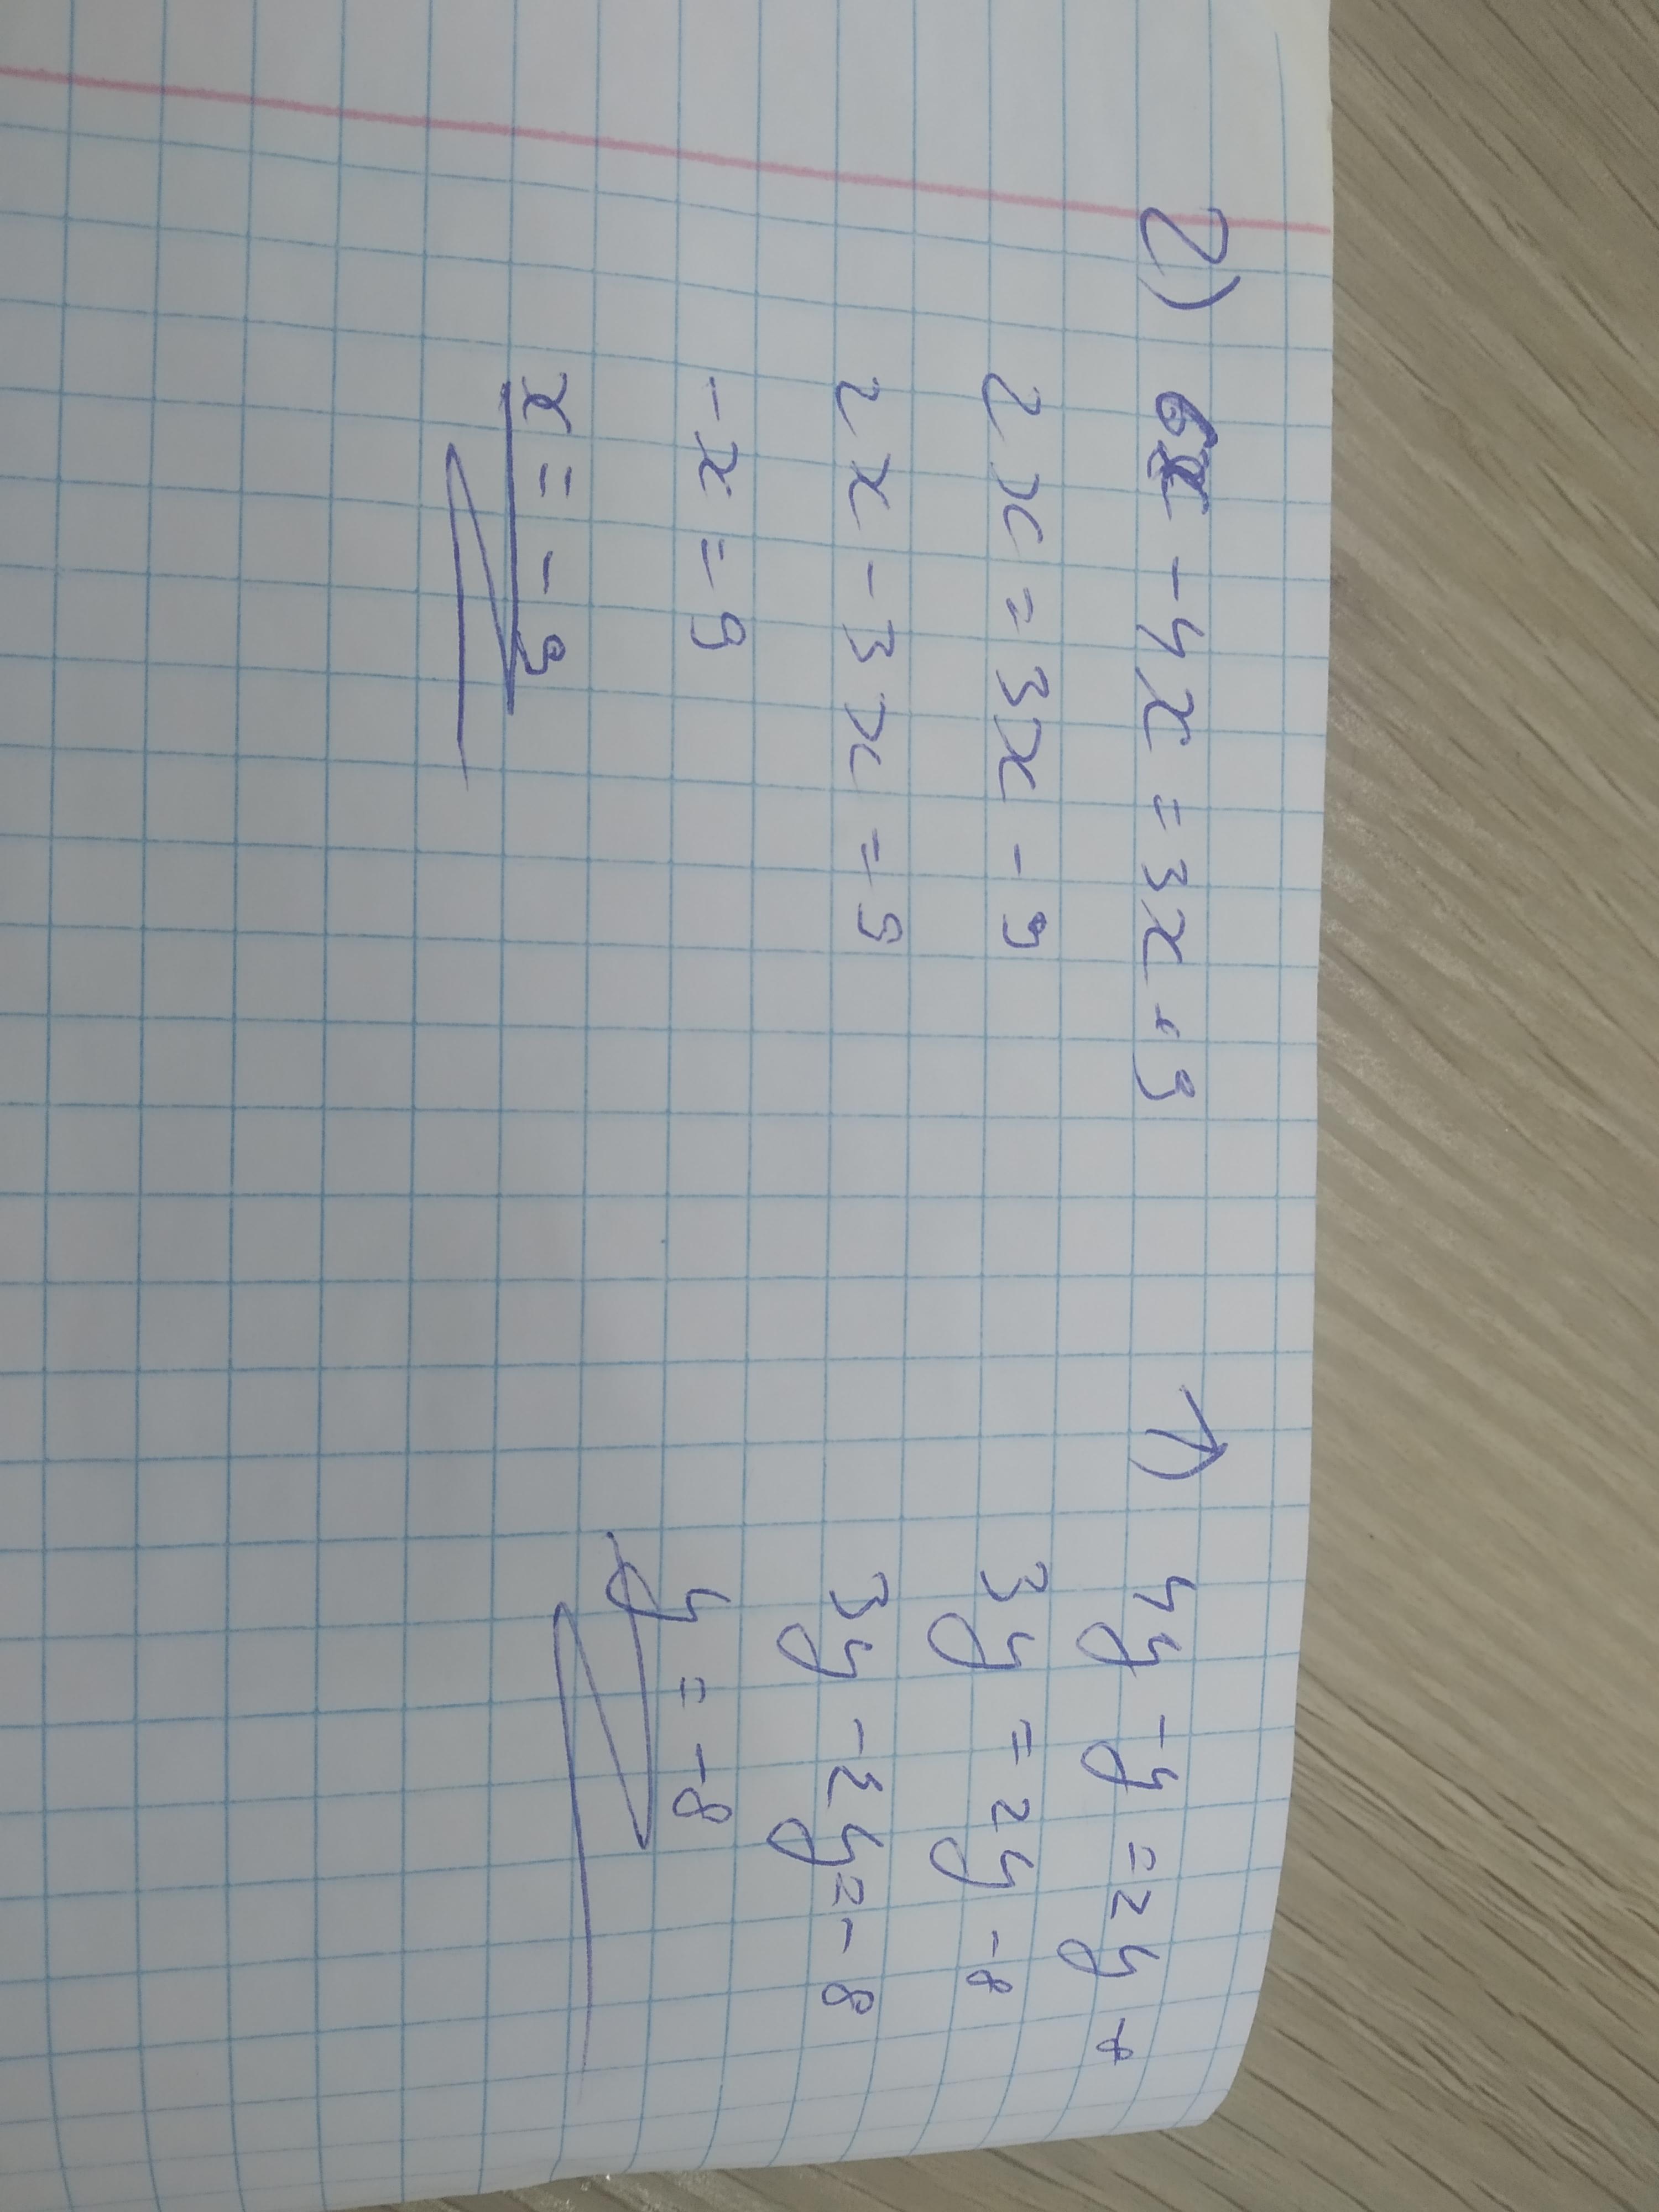 2) 6x - 4x = 3x + 9
2x = 3x - 9
2x - 3x = 9
-x = 9
x = -9
1) 4y - y = 2y - 8
3y = 2y - 8
3y - 2y = - 8
y = -8